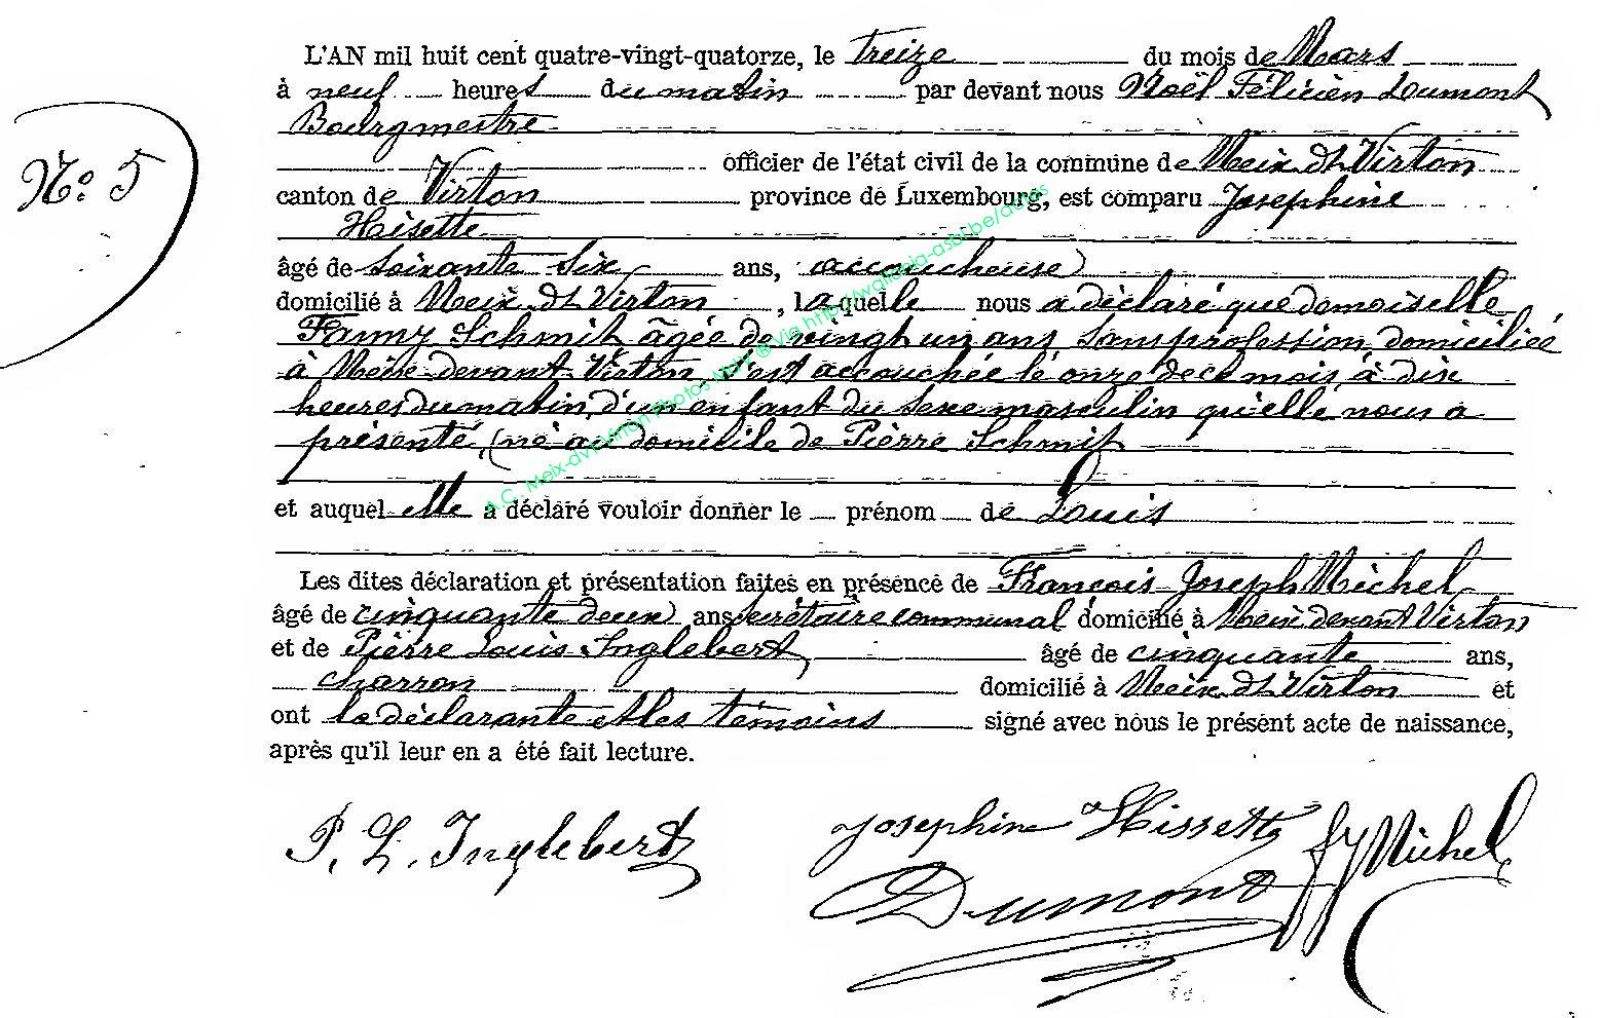 L'AN mil huit cent quatre-vingt-quatorze, le treize du mois de Mars
à neuf heures du matin par devant nous Noël Félicien Dumont
Bourgmestre
officier de l'état civil de la commune de Meix dt Virton
canton de Virton province de Luxembourg, est comparu Josephine
Hisette
âgé de soixante six ans, accoucheuse
domicilié à Meix dt Virton, laquelle nous a déclaré que demoiselle
Fanny Schmit âgée de vingt un ans sans profession domiciliée
à Meix devant Virton, s'est accouchée le onze de ce mois, à dix
heures du matin, d'un enfant du sexe masculin qu'elle nous a
présenté, (né au domicile de Pierre Schmit
et auquel elle a déclaré vouloir donner le prénom de Louis
Les dites déclaration et présentation faites en présence de François Joseph Michel
âgé de cinquante deux ans secrétaire communal domicilié à Meix devant Virton
et de Pierre Louis Inglebert, âgé de cinquante ans,
charron domicilié à Meix dt Virton et
ont la déclarante et les témoins signé avec nous le présent acte de naissance,
après qu'il leur en a été fait lecture.
No: 5
P. L. Inglebert
Josephine Hissette
fJ Michel
Dumont
A.C. Meix-dvt-Virton Photos ® via http://wallonia-asbl.be/actes